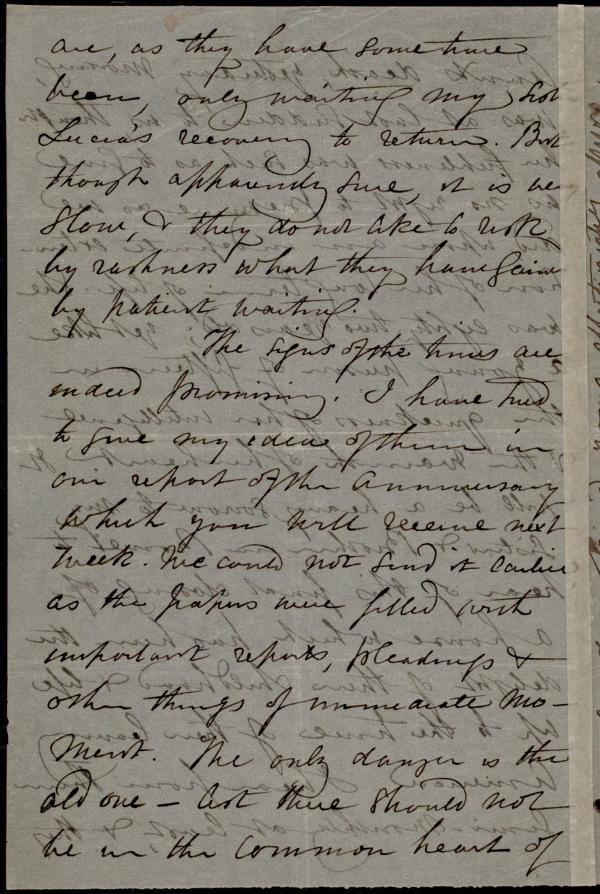 are, as they have some time
been, only waiting my sist
Lucia's recovery to return. But
though apparently sure, it is ver
slow, & they do not like to risk
by rashness what they have gaine
by patient waiting.
The signs of the times are
indeed promising. I have tried
to give my idea of them in
our report of the Anniversary
which you will receive next
week. We could not send it earlier
as the papers were filled with
important reports, pleadings &
other things of immediate mo-
ment. The only danger is the
old one — lest there should not
be in the common heart of